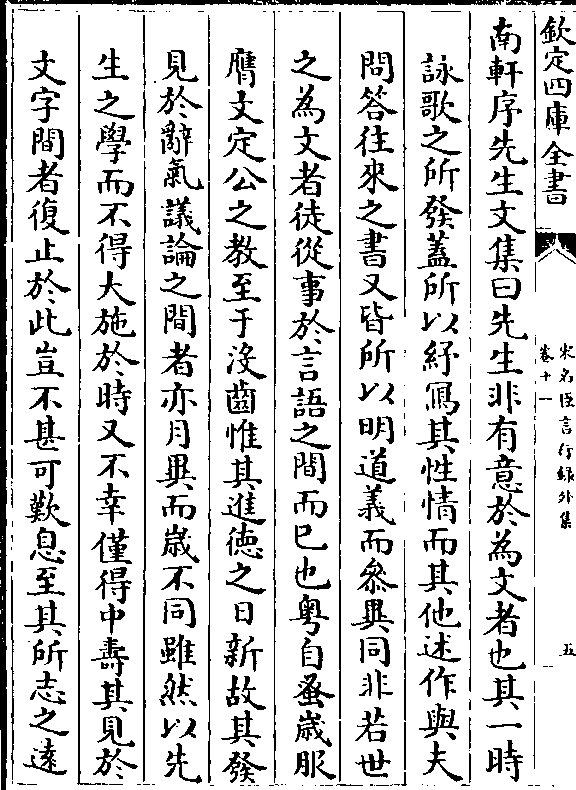 欽定四庫全書
宋名臣言行録外集
卷十一
五
南軒序先生文集曰先生非有意於為文者也其一時
詠歌之所發蓋所以紓寫其性情而其他述作與夫
問答往來之書又皆所以明道義而叅異同非若世
之為文者徒從事於言語之間而已也粤自蚤嵗服
膺文定公之教至于沒齒惟其進徳之日新故其發
見於辭氣議論之間者亦月異而嵗不同雖然以先
生之學而不得大施於時又不幸僅得中壽其見於
文字間者復止於此豈不甚可歎息至其所志之遠